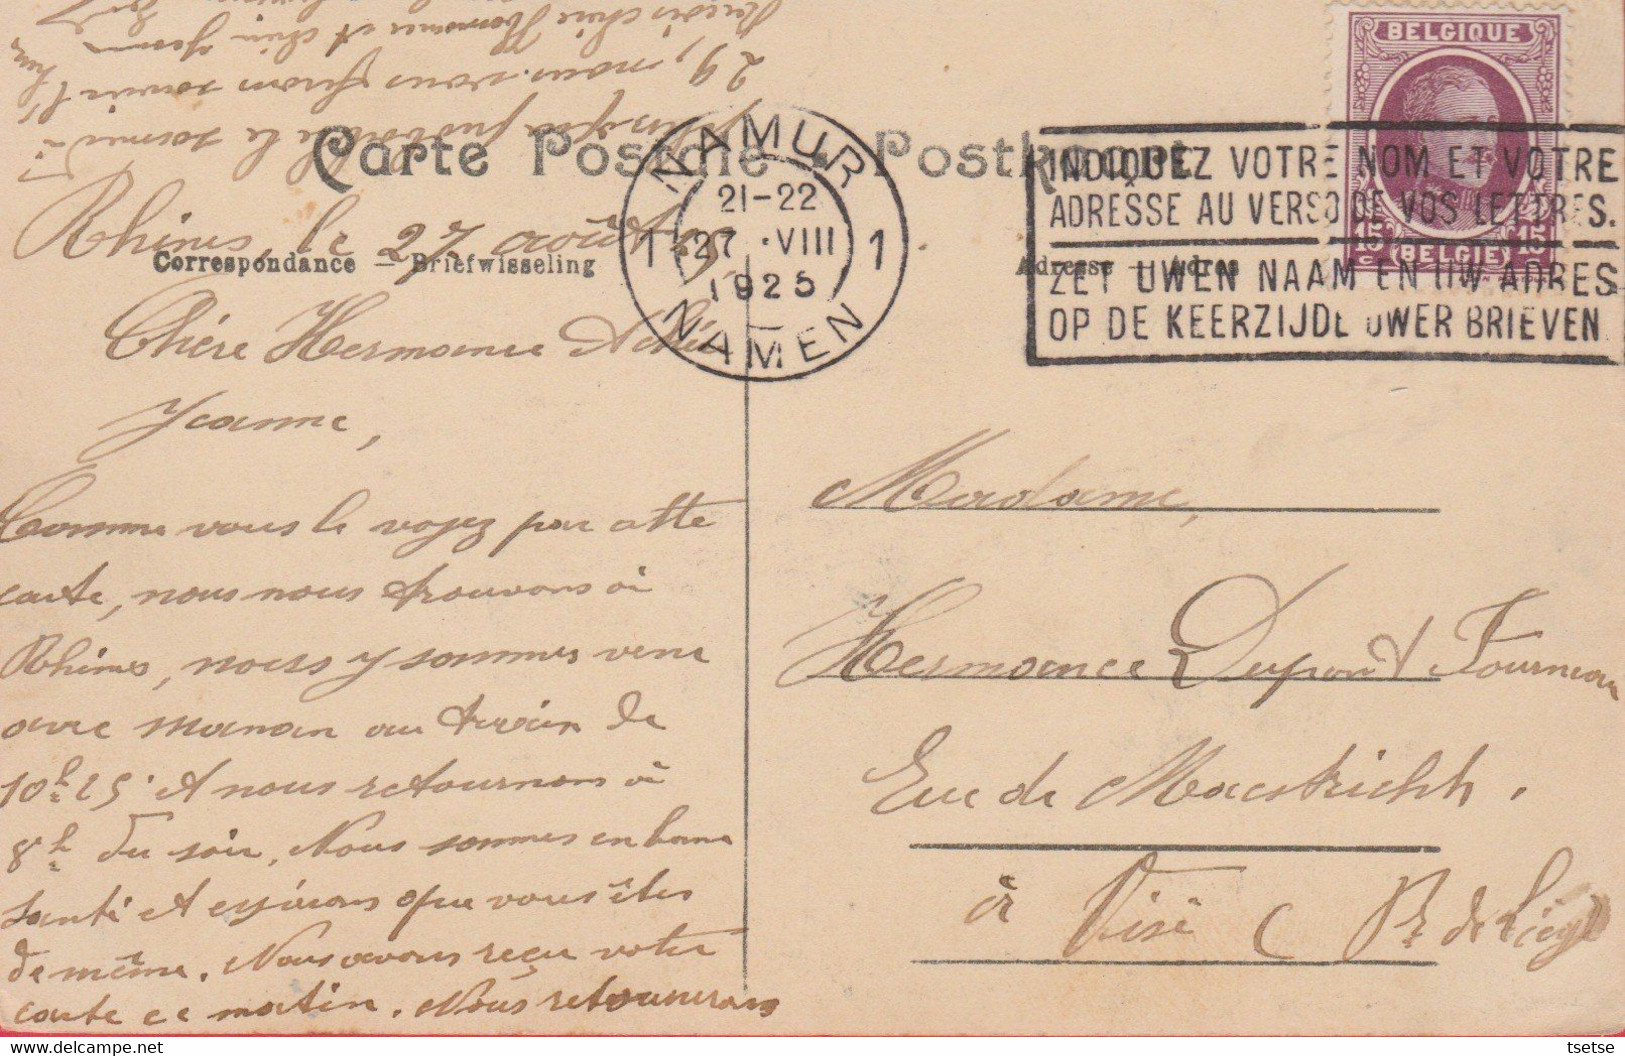 BELGIQUE
15 c 15 c
(BELGIE)
Carte Postale • Postkaart
NAMUR
21-22
1 27 • VIII 1
1925
NAMEN
INDIQUEZ VOTRE NOM ET VOTRE
ADRESSE AU VERSO DE VOS LETTRES.
ZET UWEN NAAM EN UW ADRES
OP DE KEERZIJDE UWER BRIEVEN
Correspondance — Briefwisseling
Adresse — Adres
Rhisnes, le 27 août
Chère Hermance
Jeanne,
Comme vous le voyez par cette
carte, nous nous trouvons à
Rhisnes, nous y sommes venu
avec maman au train de
10h.25 et nous retournons à
8h. du soir. Nous sommes en bonne
santé et espérons que vous êtes
de même. Nous avons reçu votre
carte ce matin. Nous retournerons
29, nous vous ferons savoir l'
Madame,
Hermance Dupont Fourneau
Rue de Maestricht.
à Visé (Pr de Liège)
tsetse